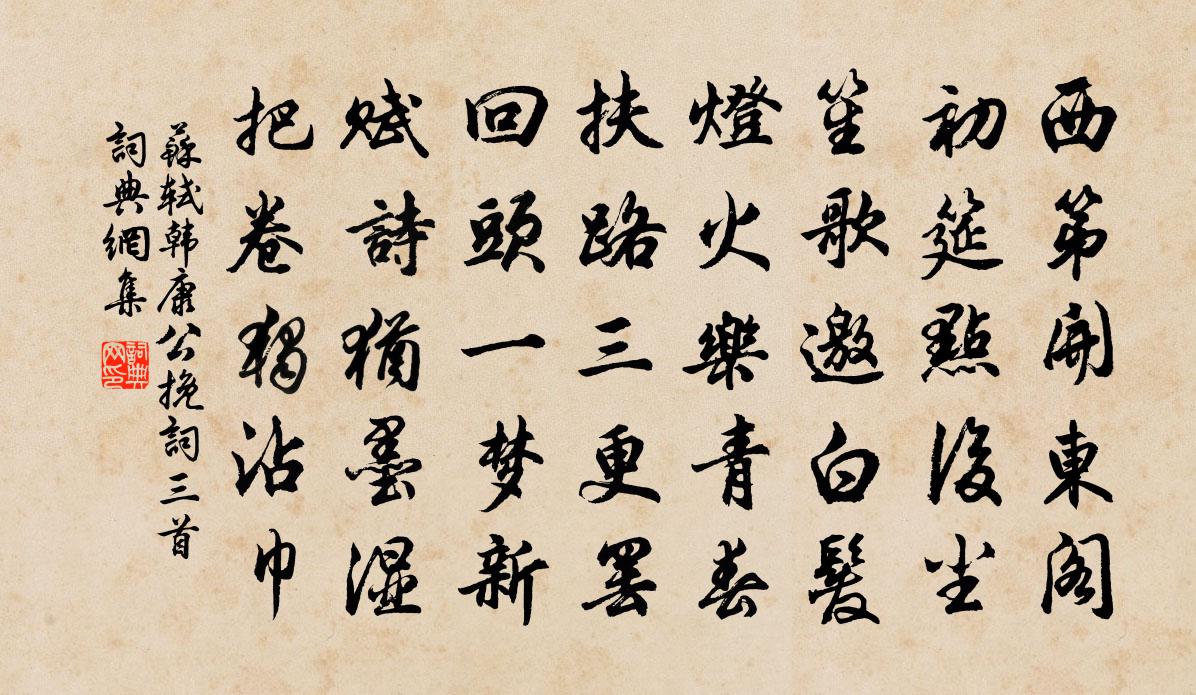 西第開東閣
初筵點後塵
笙歌邀白髮
燈火樂青春
扶路三更罷
回頭一梦新
賦詩猶墨湿
把卷獨沾巾
蘇軾韩康公挽詞三首
詞典網集
詞典网印